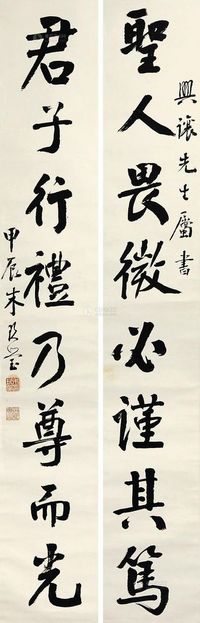 興讓先生屬書
聖人畏微必謹其篤
君子行禮乃尊而光
甲辰朱